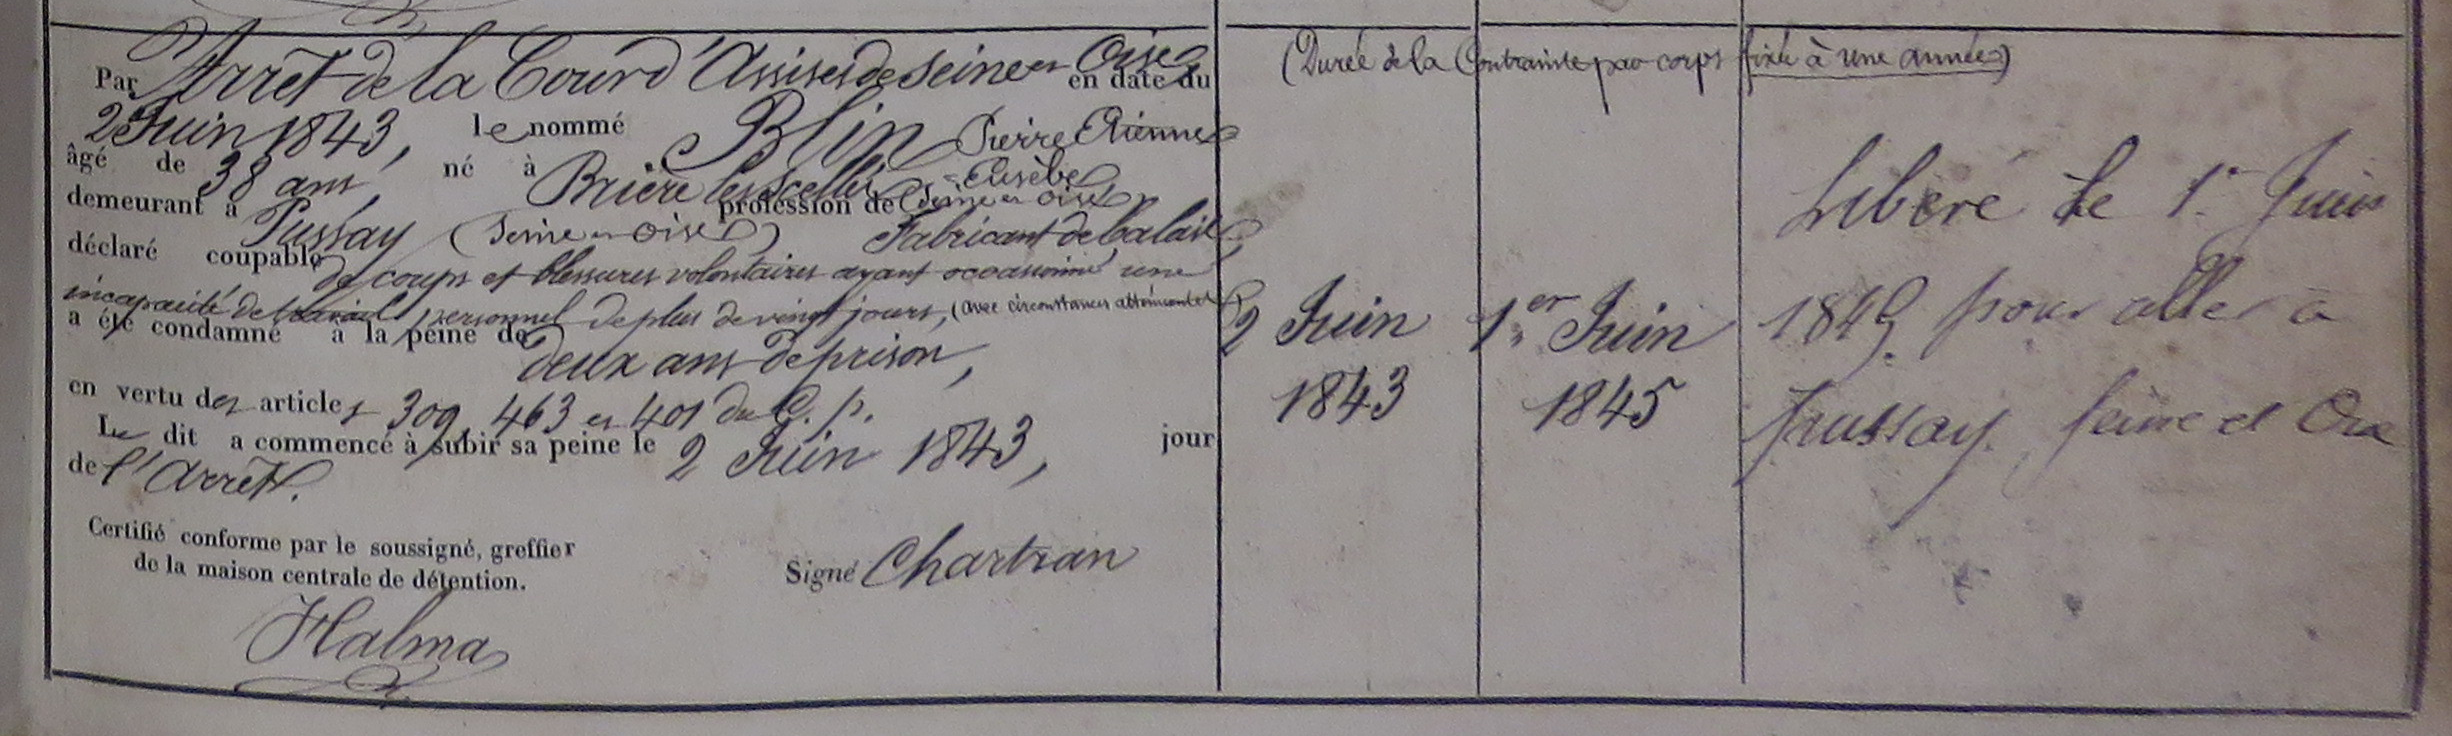 Par Arrêt de la Cour d'Assises de Seine et Oise en date du
2 Juin 1843, le nommé Blin Pierre Etienne
Eusèbe
âgé de 38 ans, né à Brière les Scellés (Seine et Oise)
demeurant à Pussay (Seine et Oise) profession de Fabricant de balais,
déclaré coupable de coups et blessures volontaires ayant occasionné une
incapacité de travail personnel de plus de vingt jours, (avec circonstances atténuantes)
a été condamné à la peine de deux ans de prison,
en vertu des articles 309, 463 et 401 du C. p.
Le dit a commencé à subir sa peine le 2 Juin 1843, jour
de l'Arrêt.
Certifié conforme par le soussigné, greffier
de la maison centrale de détention.
Signé Chartran
Halma
(Durée de la Contrainte par corps fixée à une année)
2 Juin
1843
1er Juin
1845
Libéré le 1er Juin
1845 pour aller à
Pussay. Seine et Oise